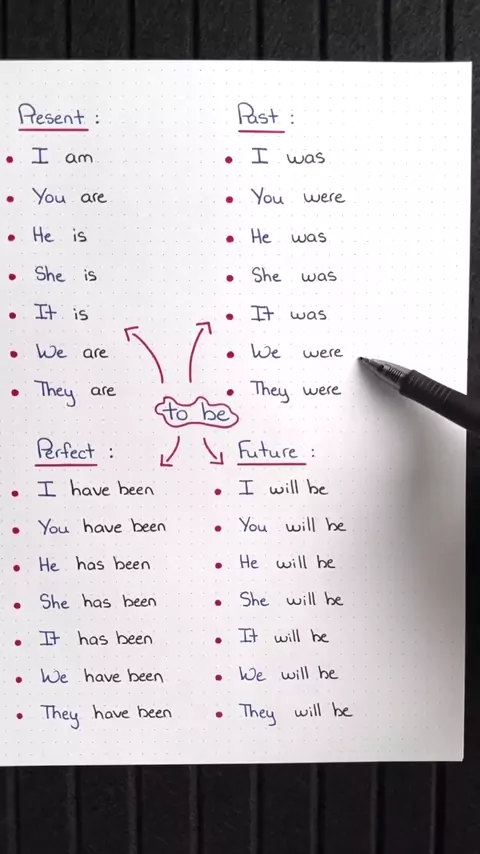 Present :
I am
You are
He is
She is
It is
We are
They are
Past :
I was
You were
He was
She was
It was
We were
They were
to be
Perfect :
I have been
You have been
He has been
She has been
It has been
We have been
They have been
Future :
I will be
You will be
He will be
She will be
It will be
We will be
They will be